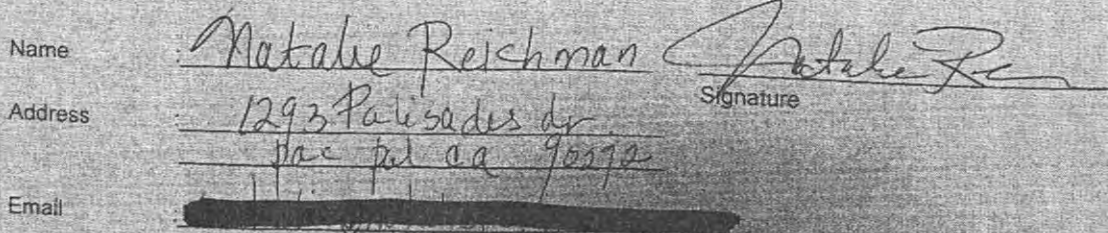 Name Natalie Reichman Natalie Re
Signature
Address 1293 Palisades dr.
pac pal ca 90272
Email